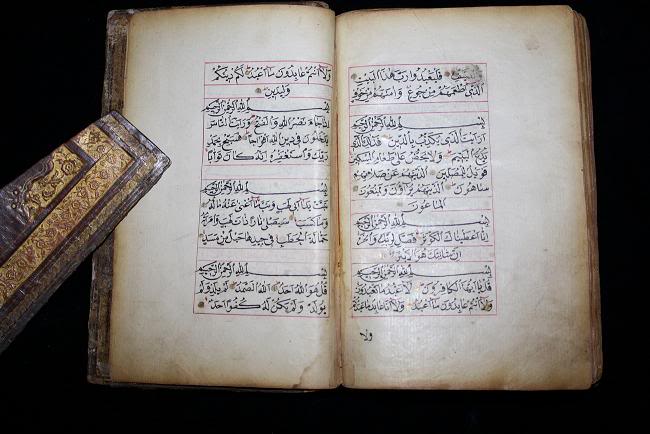 والصيف فليعبدوا رب هذا البيت
الذي اطعمهم من جوع وامنهم من خوف
بسم الله الرحمن الرحيم
ارايت الذي يكذب بالدين فذلك الذي
يدع اليتيم ولا يحض على طعام المسكين
فويل للمصلين الذين هم عن صلاتهم
ساهون الذين هم يراؤن ويمنعون
الماعون
بسم الله الرحمن الرحيم
انا اعطيناك الكوثر فصل لربك وانحر
ان شانئك هو الابتر
بسم الله الرحمن الرحيم
قل يا ايها الكافرون لا اعبد ما تعبدون
ولا انتم عابدون ما اعبد ولا انا عابد ما عبدتم
ولا
ولا انتم عابدون ما اعبد لكم دينكم
ولي دين
بسم الله الرحمن الرحيم
اذا جاء نصر الله والفتح ورايت الناس
يدخلون في دين الله افواجا فسبح بحمد
ربك واستغفره انه كان توابا
بسم الله الرحمن الرحيم
تبت يدا ابي لهب وتب ما اغنى عنه ماله
وما كسب سيصلى نارا ذات لهب وامراته
حمالة الحطب في جيدها حبل من مسد
بسم الله الرحمن الرحيم
قل هو الله احد الله الصمد لم يلد ولم
يولد ولم يكن له كفوا احد